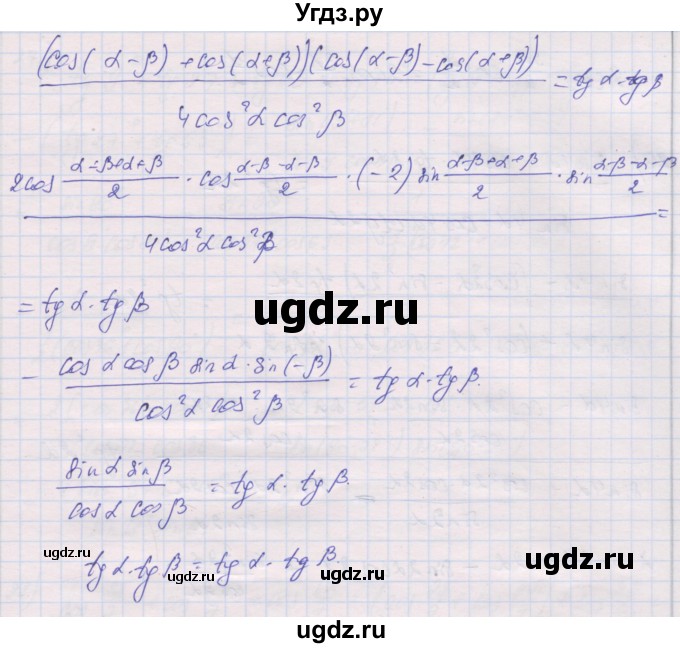 Угдз.ру
(cos(α-β)+cos(α+β))(cos(α-β)-cos(α+β)) / 4cos²α cos²β = tg α·tg β
2cos (α-β+α+β)/2 · cos (α-β-α-β)/2 · (-2) sin (α-β+α+β)/2 · sin (α-β-α-β)/2 / 4cos²α cos²β =
= tg α·tg β
ugdz.ru
- cos α cos β sin α·sin(-β) / cos²α cos²β = tg α·tg β.
sin α sin β / cos α cos β = tg α· tg β.
ugdz.ru
tg α·tg β = tg α· tg β.
ugdz.ru
ugdz.ru
ugdz.ru
ugdz.ru
ugdz.ru